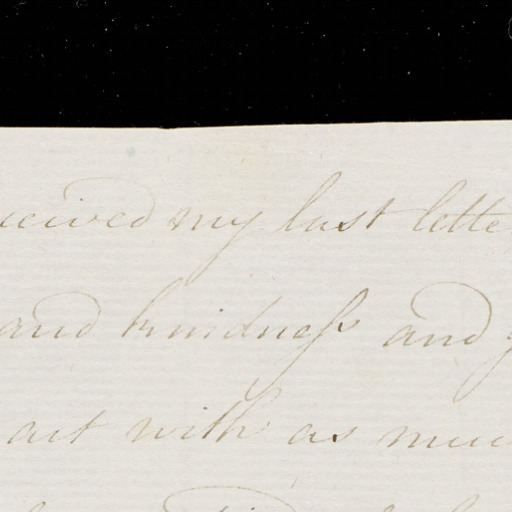 ceived my last lette
and kindneſs and
act with as muc